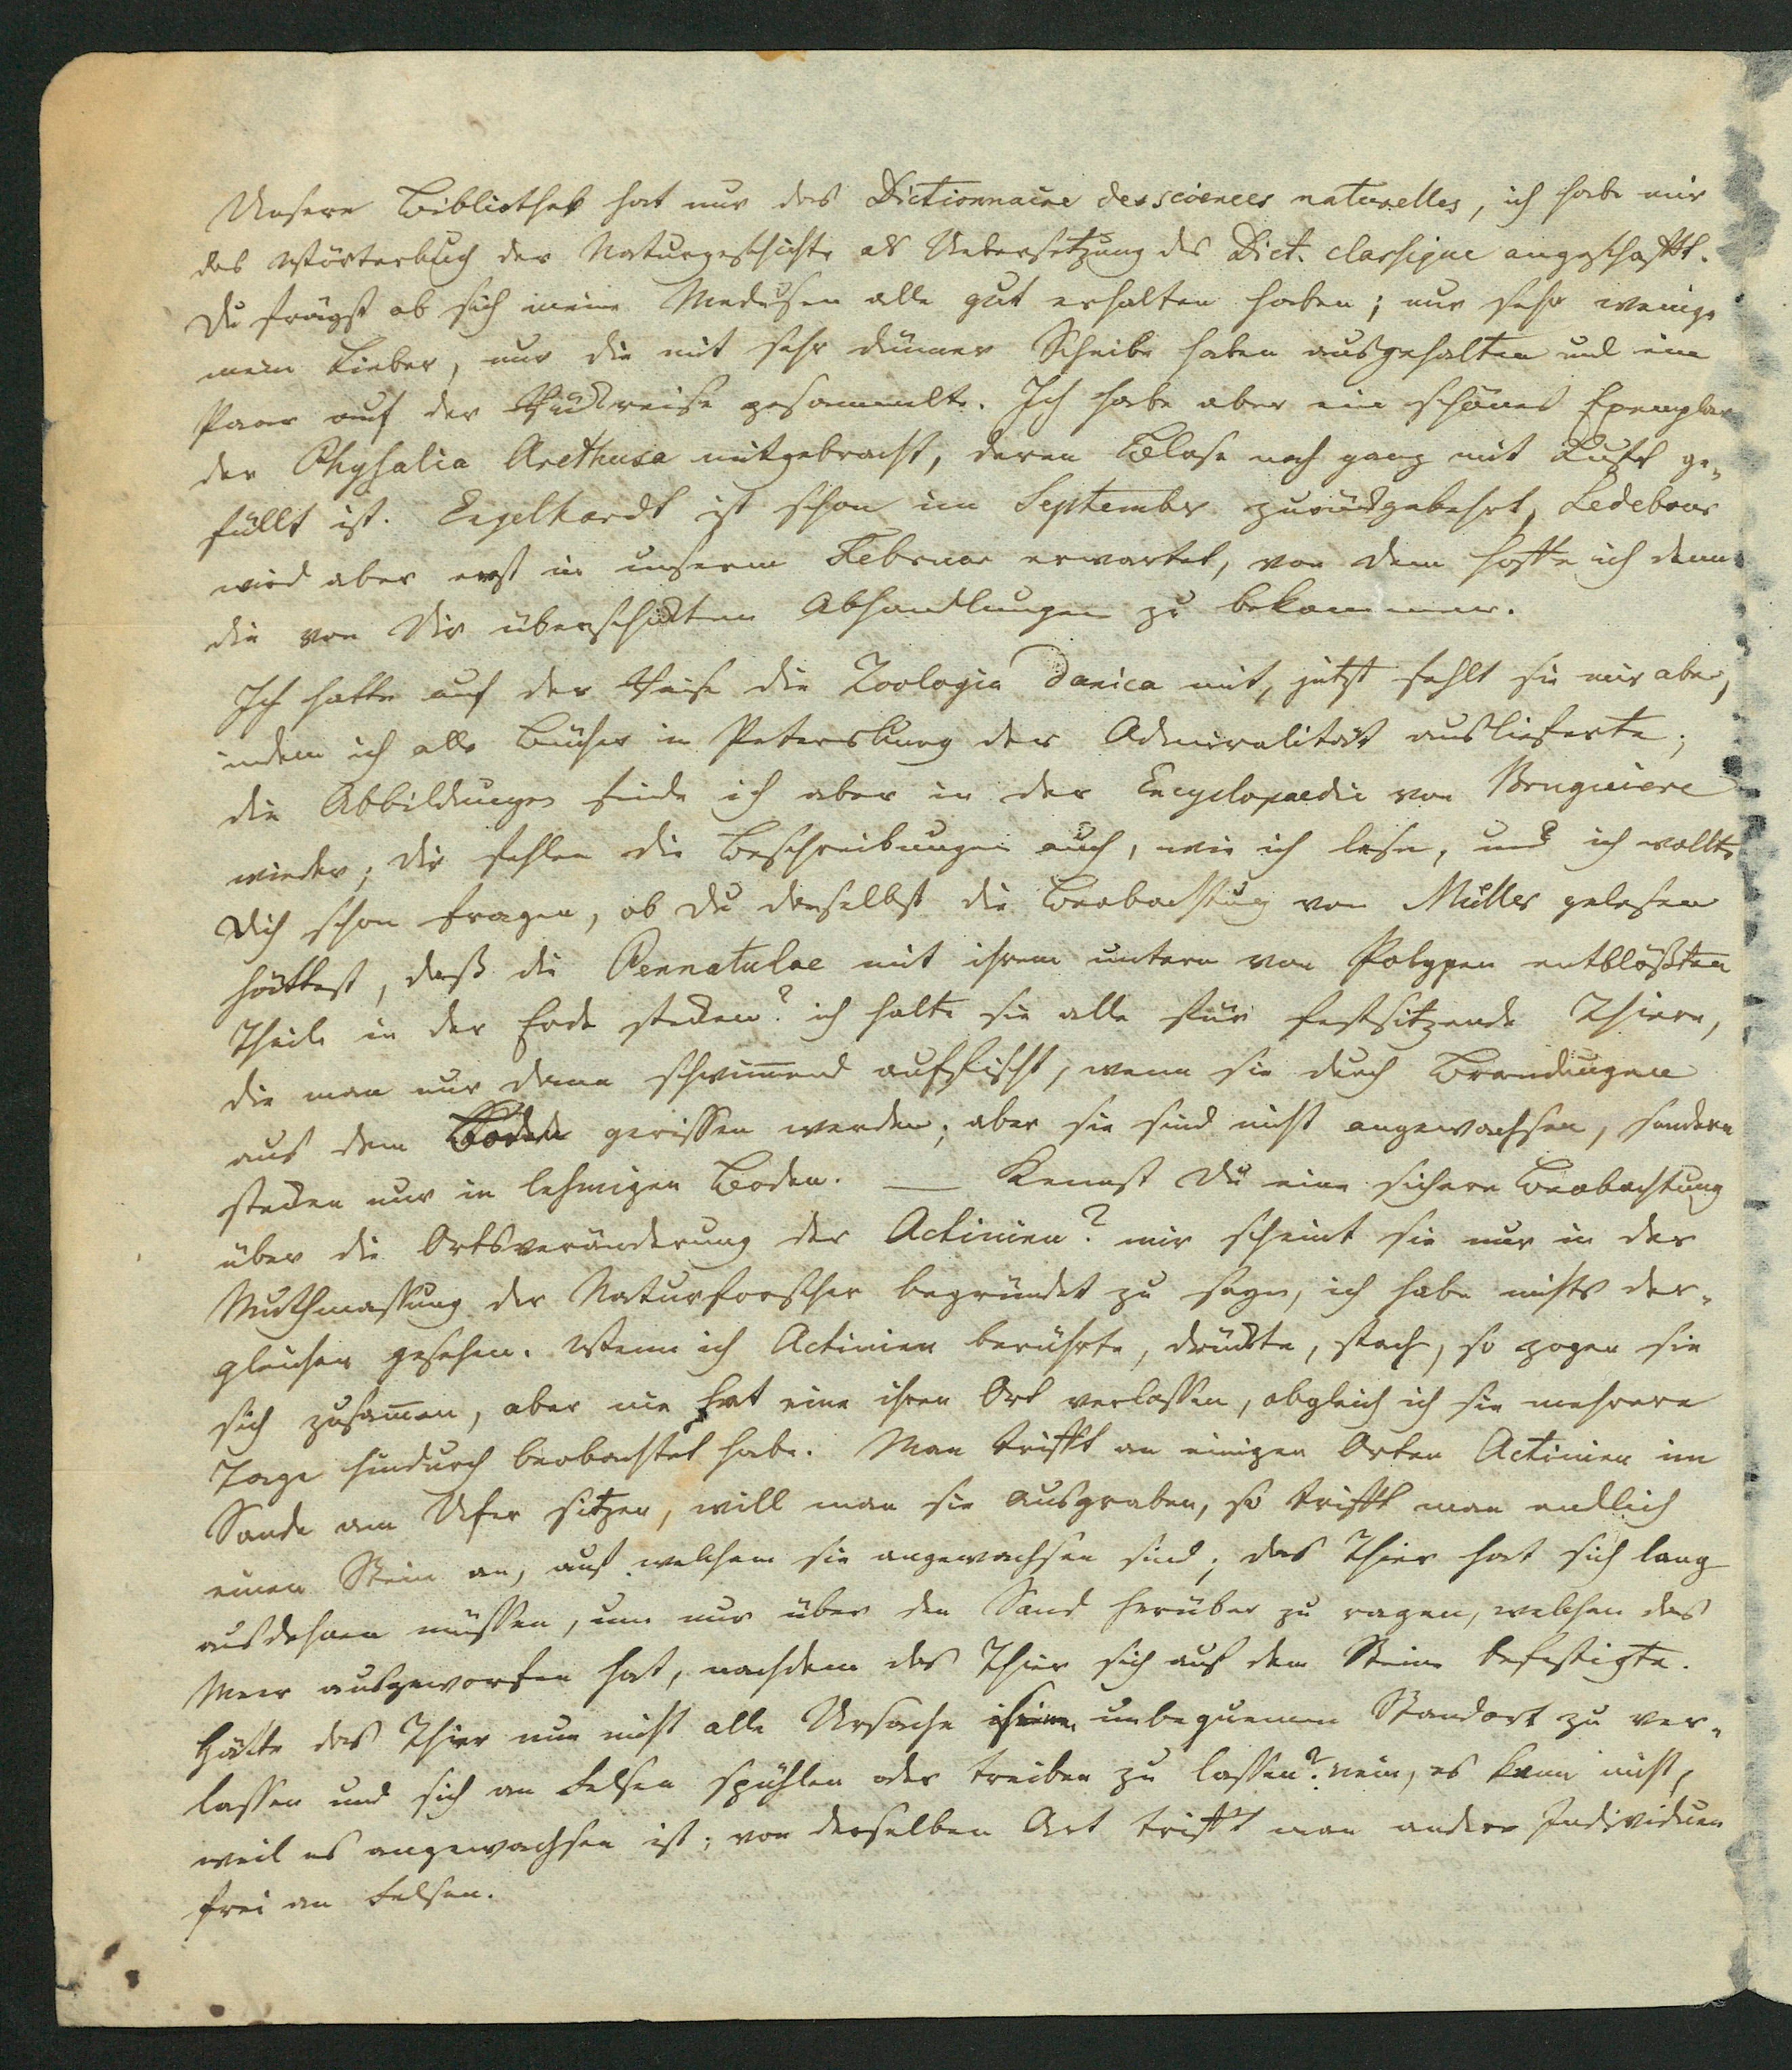 Unsere Bibliothek hat nur das Dictionnaire des sciences naturelles, ich habe mir
das Wörterbuch der Naturgeschichte als Uebersetzung des Dict. classique angeschafft.
Du frägst ob sich meine Medusen alle gut erhalten haben; nur sehr wenige
mein Lieber, nur die mit sehr dünner Scheibe haben ausgehalten und ein
Paar auf der Rückreise gesammelte. Ich habe aber ein schönes Exemplar
der Physalia Arethusa mitgebracht, deren Blase noch ganz mit Luft ge-
füllt ist. Engelhardt ist schon im September zurückgekehrt, Ledebour
wird aber erst in unserem Februar erwartet, von dem hoffe ich denn
die von Dir überschickten Abhandlungen zu bekommen.
Ich hatte auf der Reise die Zoologia Danica mit, jetzt fehlt sie mir aber,
indem ich alle Bücher in Petersburg der Admiralität auslieferte;
die Abbildungen finde ich aber in der Encyclopaedie von Bruguiere
wieder; Dir fehlen die Beschreibungen auch, wie ich lese, und ich wollte
Dich schon fragen, ob Du daselbst die Beobachtung von Müller gelesen
hättest, daß die Pennatulae mit ihrem untern von Polypen entblößten
Theile in der Erde stecken? ich halte sie alle für festsitzende Thiere,
die man nur dann schwim̅end auffischt, wenn sie durch Brandungen
aus dem Boden gerissen werden; aber sie sind nicht angewachsen, sondern
stecken nur in lehmigen Boden. — Kennst Du eine sichere Beobachtung
über die Ortsveränderung der Actinien? mir scheint sie nur in der
Muthmassung der Naturforscher begründet zu seyn, ich habe nichts der-
gleichen gesehen. Wenn ich Actinien berührte, drückte, stach, so zogen sie
sich zusam̅en, aber nie hat eine ihren Ort verlassen, obgleich ich sie mehrere
Tage hindurch beobachtet habe. Man trifft an einigen Orten Actinien im
Sande am Ufer sitzen, will man sie ausgraben, so trifft man endlich
einen Stein an, auf welchem sie angewachsen sind; das Thier hat sich lang
ausdehnen müssen, um nur über den Sand herüber zu ragen, welchen das
Meer ausgeworfen hat, nachdem das Thier sich auf dem Steine befestigte.
Hätte das Thier nun nicht alle Ursache seinen unbequemen Standort zu ver-
lassen und sich an Felsen spühlen oder treiben zu lassen? nein, es kann nicht,
weil es angewachsen ist; von derselben Art trifft man andere Individuen
frei an Felsen.